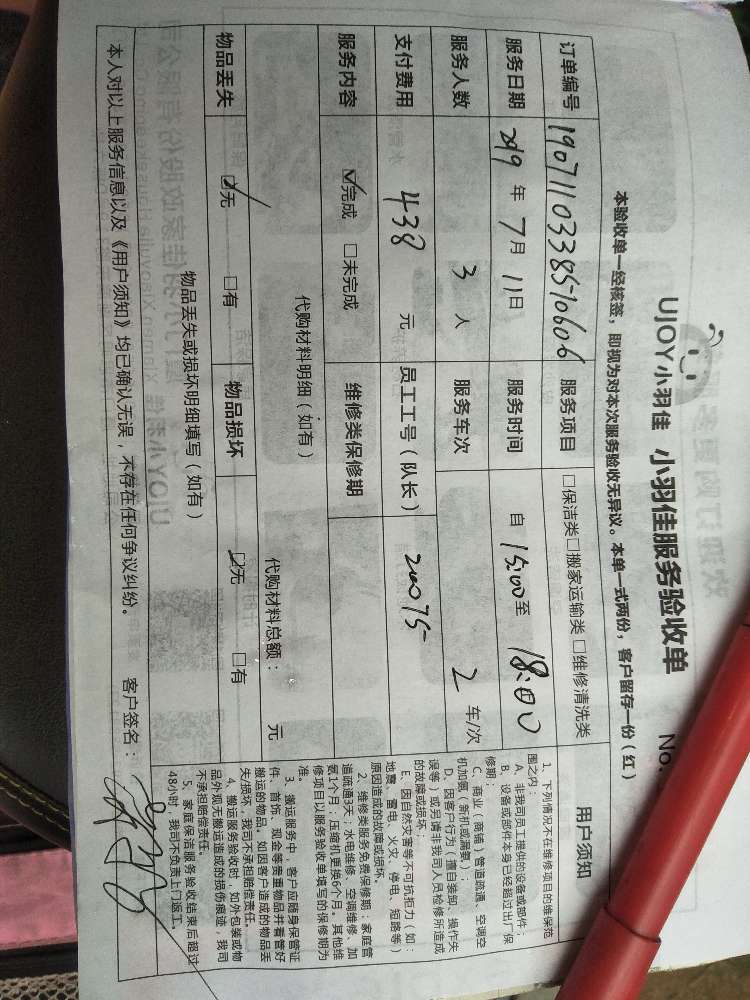 UJOY小羽佳 小羽佳服务验收单 No.
本验收单一经核签，即视为对本次服务验收无异议。本单一式两份，客户留存一份（红）
订单编号 19071103385710606 服务项目 □保洁类□搬家运输类□维修清洗类
服务日期 2019 年 7 月 11 日 服务时间 自 15:00 至 18:00
服务人数 3 人 服务车次 2 车/次
支付费用 438 元 员工工号（队长） 20075
服务内容 ☑完成 □未完成 维修类保修期
代购材料明细（如有） 代购材料总额： 元
物品丢失 ☑无 □有 物品损坏 ☑无 □有
物品丢失或损坏明细填写（如有）
本人对以上服务信息以及《用户须知》均已确认无误，不存在任何争议纠纷。 客户签名：
用户须知
1、下列情况不在维修项目的维保范
围之内：
A、非我司员工提供的设备或部件；
B、设备或部件本身已经超过出厂保
修期；
C、商业（商铺）管道疏通、空调空
机加氨（新机或漏氨）；
D、因客户行为（擅自装卸、操作失
误等）或另请非我司人员检修所造成
的故障或损坏
E、因自然灾害等不可抗拒力（如：
地震、雷电、火灾、停电、短路等）
原因造成的故障或损坏
2、维修类服务免费保修期：家庭管
道疏通3天；水电维修、空调维修、加
氨1个月，压缩机更换6个月。其他维
修项目以服务验收单填写的保修期为
准。
3、搬运服务中，客户应随身保管证
件、首饰、现金等贵重物品并看管好
搬运的物品。如因客户造成的物品丢
失/损坏，我司不承担赔偿责任。
4、搬运服务验收时，如外包装或物
品外观无搬运造成的损伤痕迹，我司
不承担赔偿责任。
5、家庭保洁服务验收结束后超过
48小时，我司不负责上门返工。